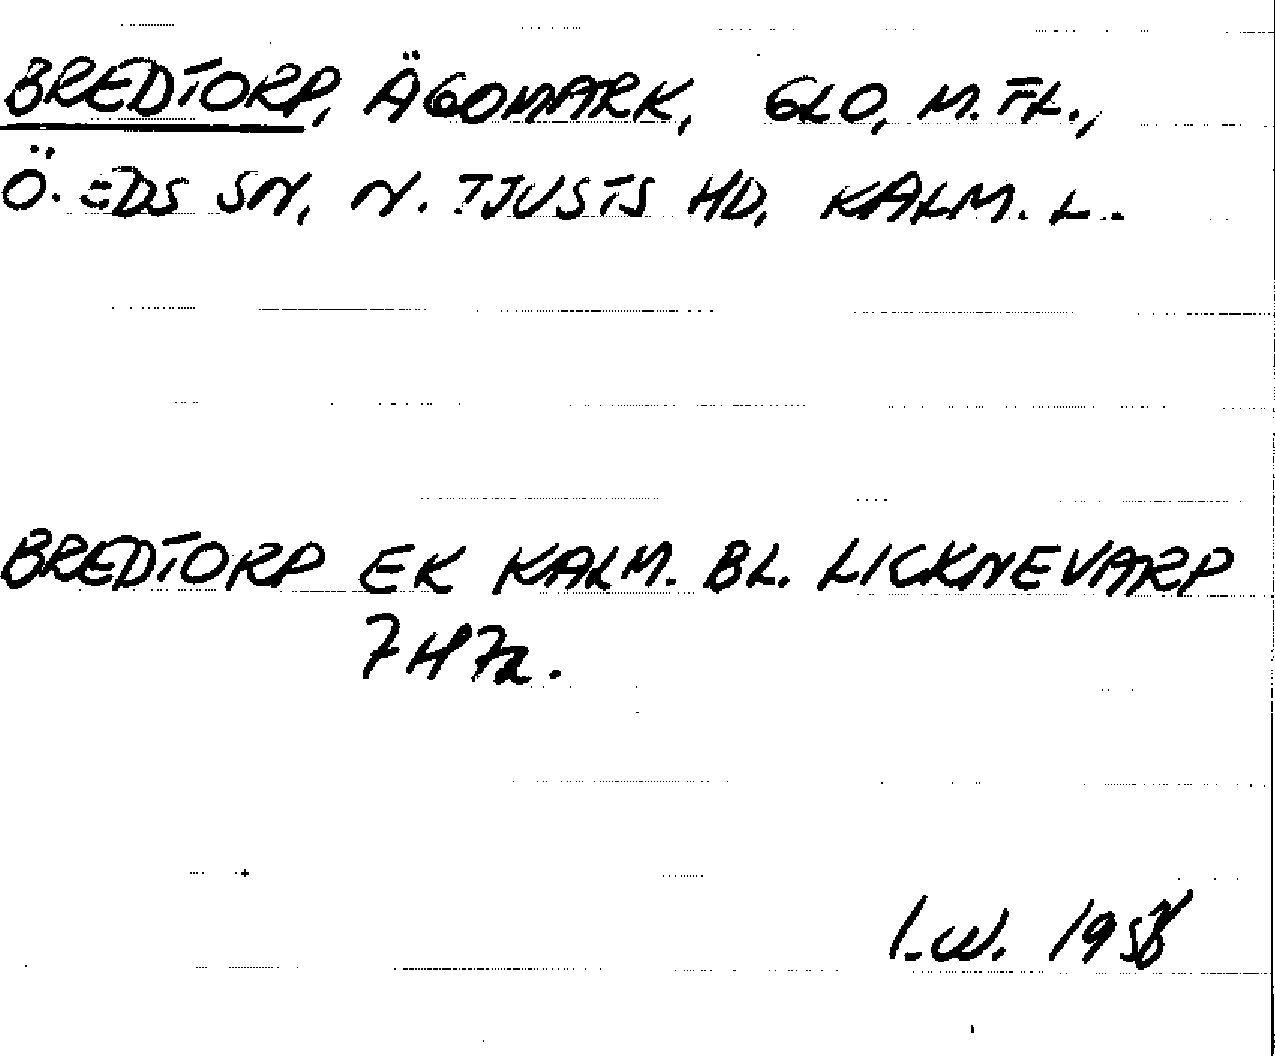 BREDTORP, ÄGOMARK, GLO, M. FL.,
Ö. EDS SN, N. TJUSTS HD, KALM. L.
BREDTORP EK KALM. BL. LICKNEVARP
7H7a.
I.W. 1958